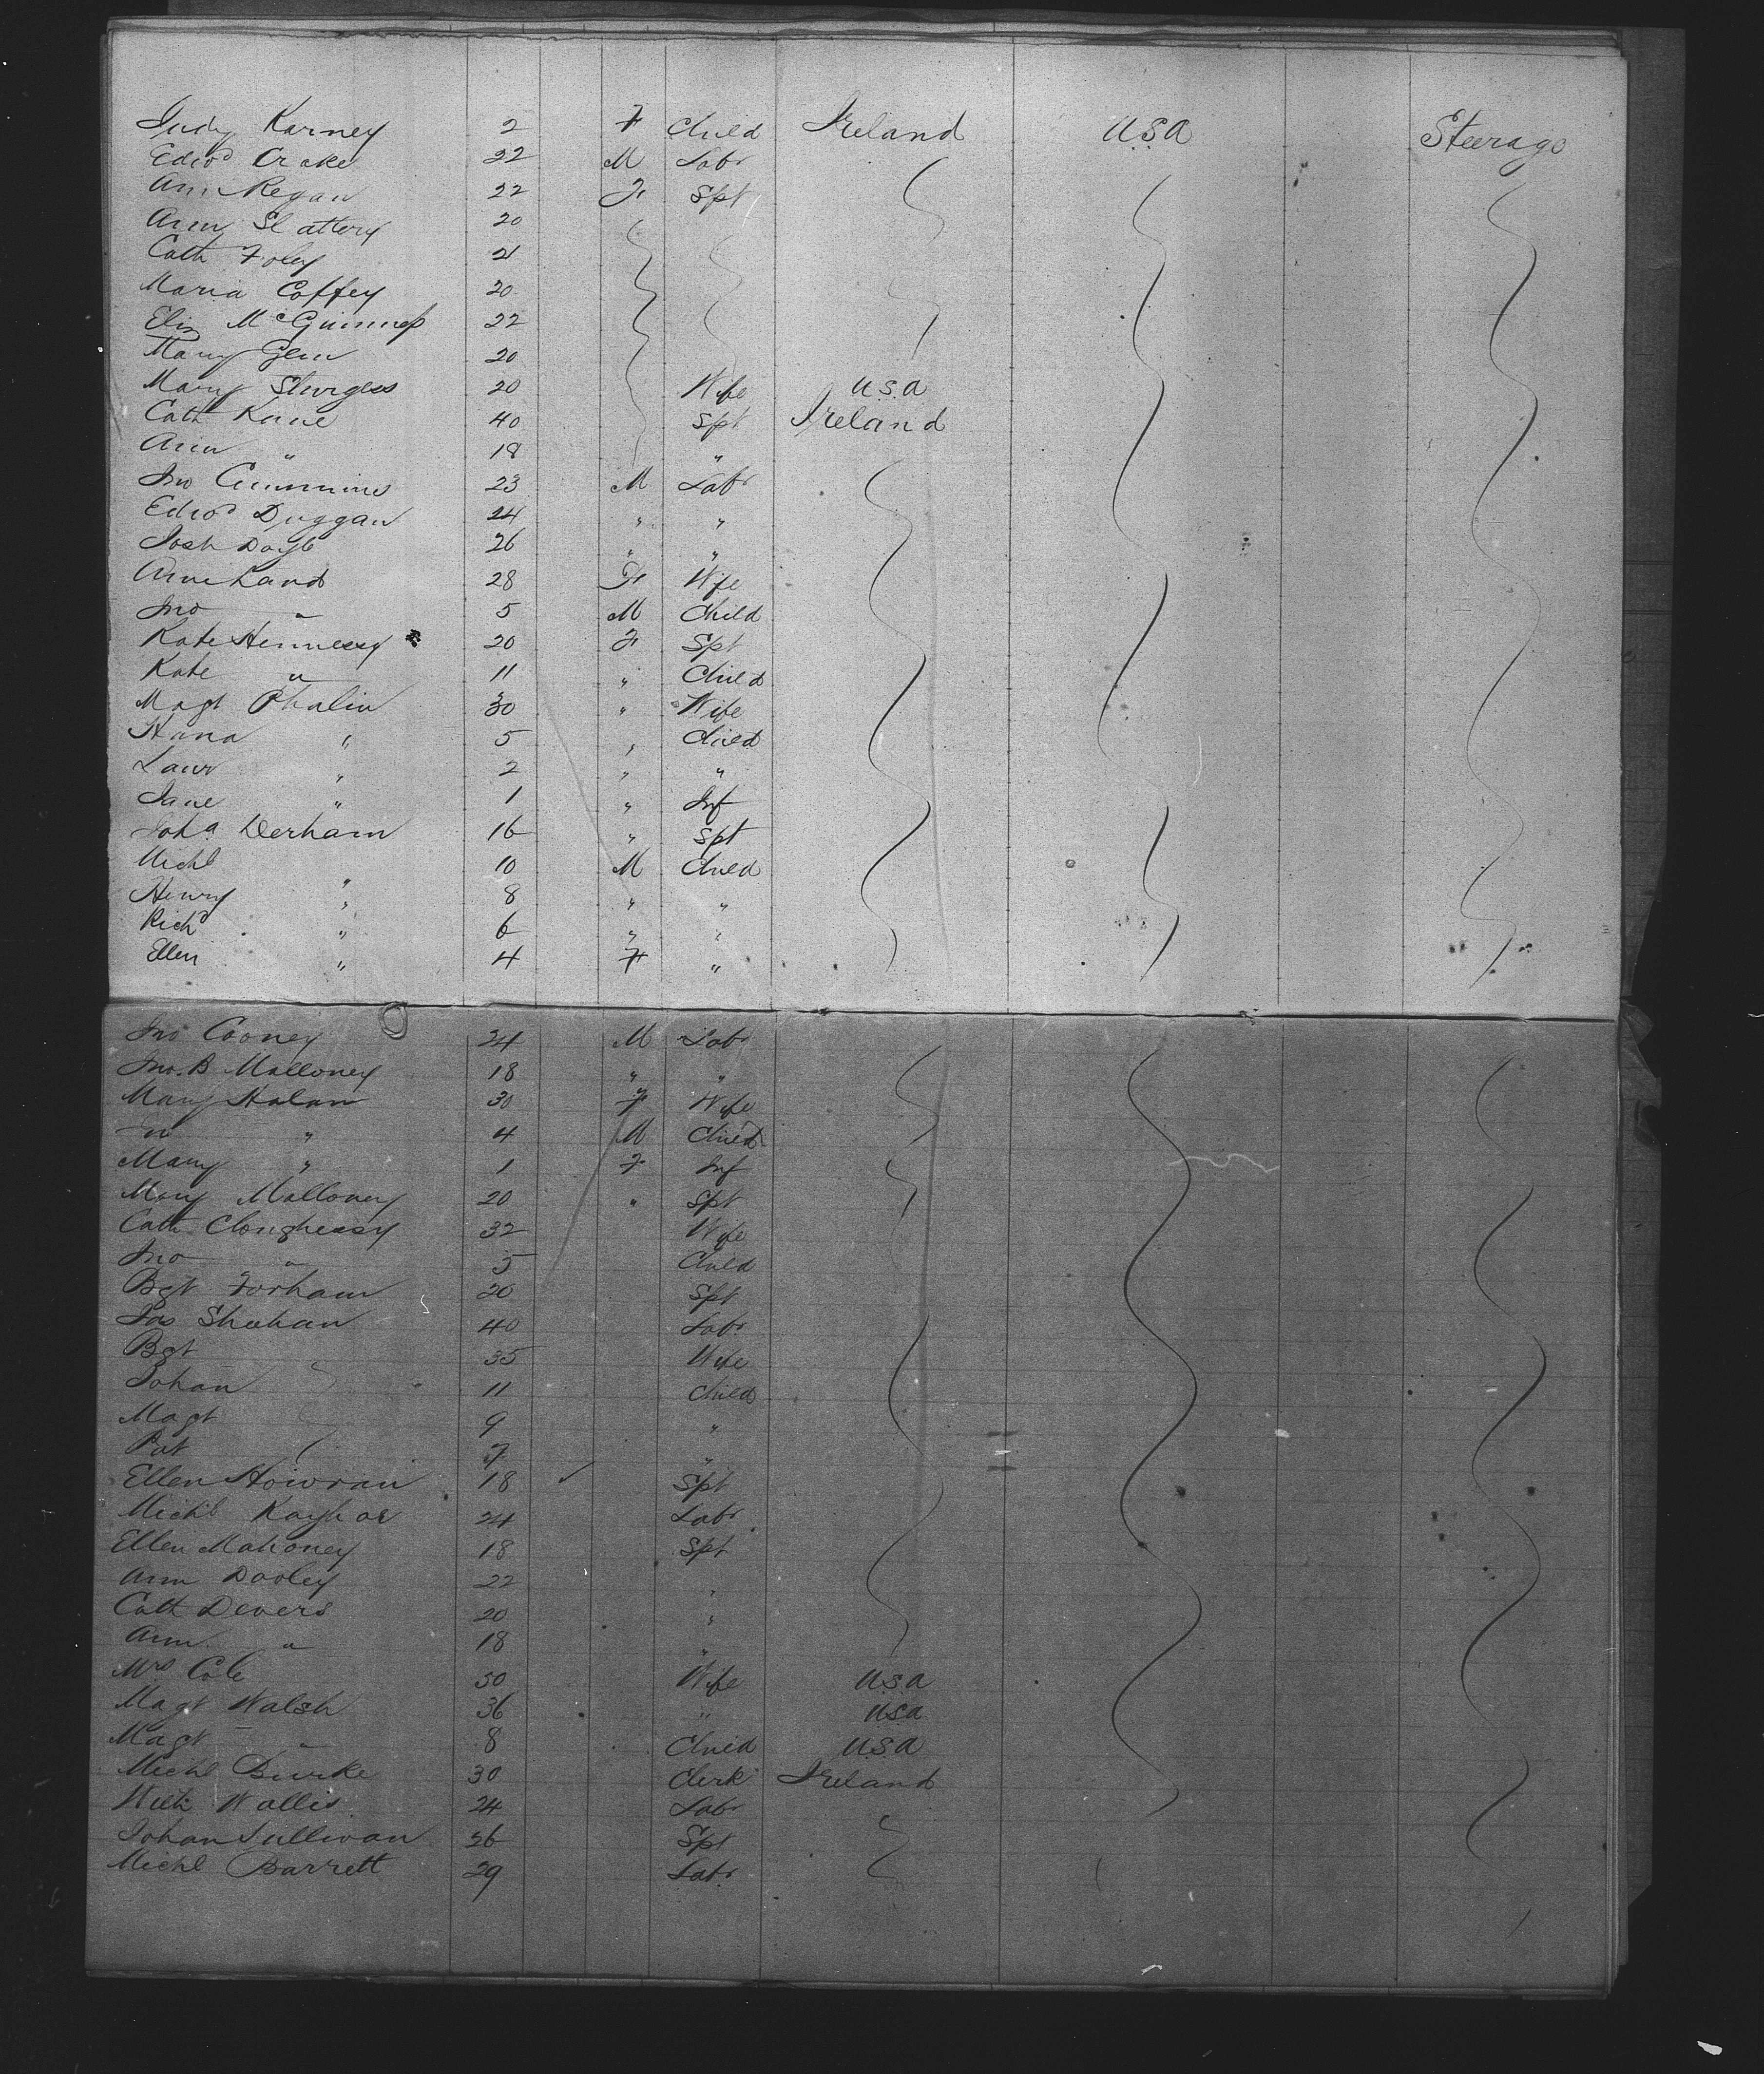 Judy Karney 2 F Child Ireland U.S.A Steerage
Edwd Crake 22 M Labr
Ann Regan 22 F Spt
Ann Slattery 20
Cath Foley 21
Maria Coffey 20
Eliz McGuinness 22
Mary Glen 20
Mary Sturgess 20 Wife U.S.A
Cath Kane 40 Spt Ireland
Ann " 18 "
Jno Cummins 23 M Labr
Edwd Duggan 24 " "
Josh Doyle 26 " "
Ann Land 28 F Wife
Jno " 5 M Child
Kate Hennessy 20 F Spt
Kate " 11 " Child
Magt Phalin 30 " Wife
Hana " 5 " Child
Laur " 2 " "
Jane " 1 " Inf
Joha Derham 16 " Spt
Michl " 10 M Child
Henry " 8 " "
Richd " 6 " "
Ellen " 4 F "
Jno Cooney 24 M Labr
Jno. B Malloney 18 " "
Mary Halan 30 F Wife
Jno " 4 M Child
Mary " 1 F Inf
Mary Malloney 20 " Spt
Cath Cloughessy 32 Wife
Jno " 5 Child
Bgt Forham 20 Spt
Jas Shehan 40 Labr
Bgt 35 Wife
Johan 11 Child
Magt 9 "
Pat 7 "
Ellen Howran 18 Spt
Michl 24 Labr
Ellen Mahoney 18 Spt
Ann Dooley 22 "
Cath Devers 20 "
Ann " 18 "
Mrs Cole 50 Wife U.S.A
Magt Walsh 36 " USA
Magt " 8 Child U.S.A
Michl Burke 30 Clerk Ireland
Willm Wallis 24 Labr
Johan Sullivan 26 Spt
Michl Barrett 29 Labr